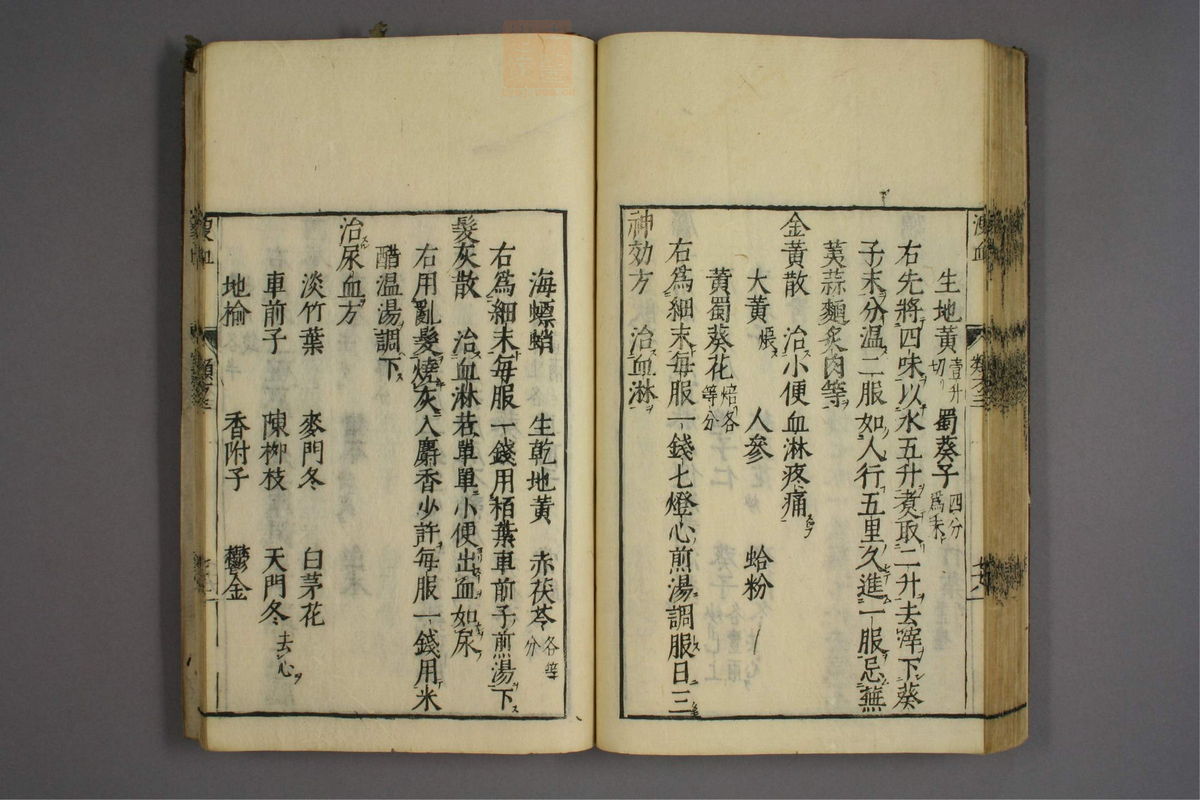 生地黃壹升切蜀葵子四分爲末
右先將四味以水五升煮取二升去滓下葵
子末分温二服如人行五里久進一服忌蕪
荑蒜麵炙肉等
金黃散 治小便血淋疼痛
大黃煨 人參 蛤粉
黃蜀葵花焙各等分
右爲細末每服一錢七燈心煎湯調服日三
神効方 治血淋
海螵蛸 生乾地黃 赤茯苓各等分
右爲細末每服一錢用栢葉車前子煎湯下
髮灰散 治血淋若單單小便出血如尿
右用亂髮燒灰入麝香少許每服一錢用米
醋温湯調下
治尿血方
淡竹葉 麥門冬 白茅花
車前子 陳柳枝 天門冬去心
地榆 香附子 鬱金